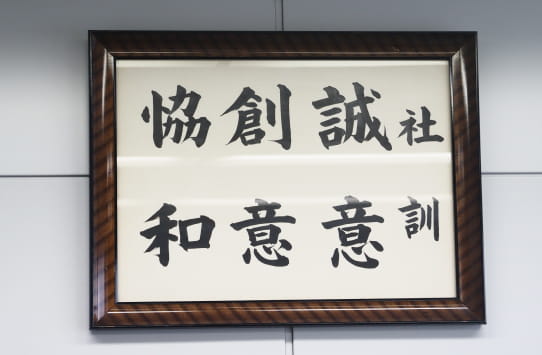 社訓
誠意
創意
協和